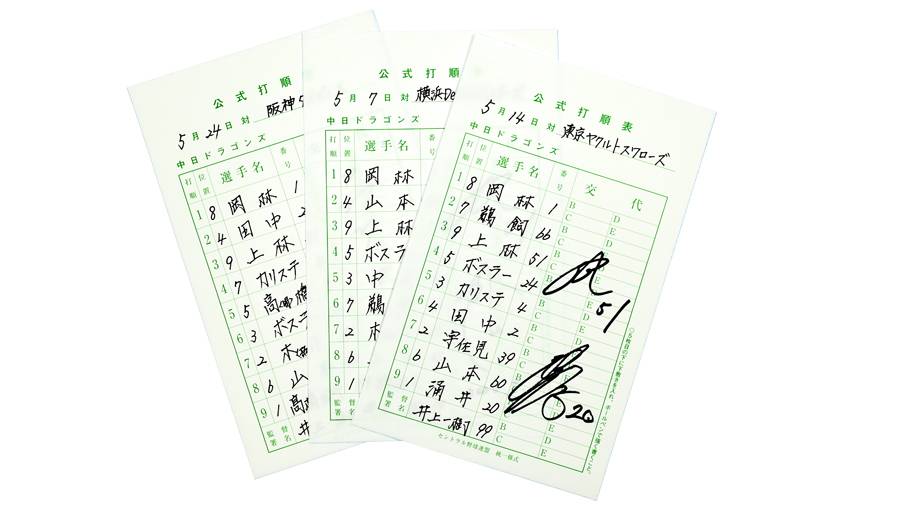 公式打順
5月24日 対 阪神
中日ドラゴンズ
打順 位置 選手名 番号
1 8 岡林 1
2 4 田中 2
3 9 上林
4 7 カリステ
5 5 高橋
6 3 ボスラ
7 2 木
8 6 山
9 1 高
監督署名 井
公式打順
5月7日 対 横浜De
中日ドラゴンズ
打順 位置 選手名 番号
1 8 岡林
2 4 山本
3 9 上林
4 5 ボスラ
5 3 中
6 7 鵜
7 2 木
8 6
9 1
監督署名
公式打順表
5月14日 対 東京ヤクルトスワローズ
中日ドラゴンズ
打順 位置 選手名 番号 交代
1 8 岡林 1 B C D E
2 7 鵜飼 66 B C D E
3 9 上林 51 B C D E
4 5 ボスラー 24 B C D E
5 3 カリステ B C D E
6 4 田中 2 B C D E
7 2 宇佐見 39 B C D E
8 6 山本 60 B C D E
9 1 涌井 20 B C D E
監督署名 井上一樹 99 B C D E
51
20
セントラル野球連盟 統一様式